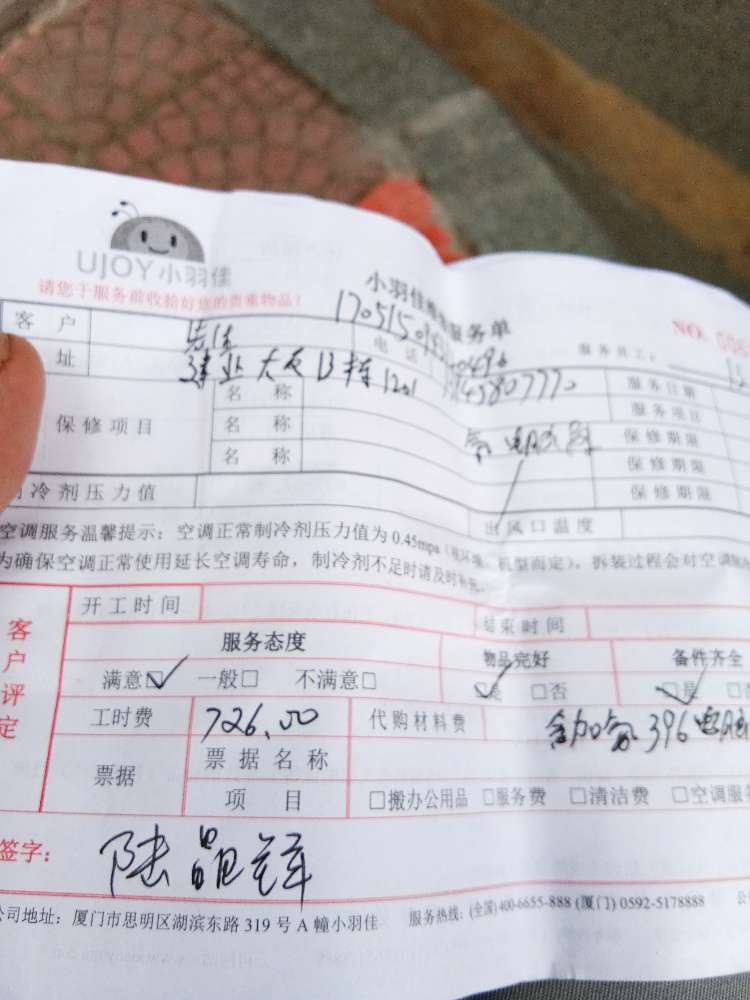 UJOY小羽佳
请您于服务前收拾好您的贵重物品!
小羽佳 服务单
NO:
客 户
电 话
服务员工:
址 建业大厦B栋1201
服务日期
保修项目
名 称
名 称
名 称
服务项目
保修期限
保修期限
保修期限
制冷剂压力值
出风口温度
空调服务温馨提示:空调正常制冷剂压力值为0.45mpa(视环境、机型而定)。拆装过程会对空调
为确保空调正常使用延长空调寿命,制冷剂不足时请及时补充。
客户评定
开工时间
结束时间
服务态度
物品完好
备件齐全
满意☑ 一般□ 不满意□
☑是 □否
☑是
工时费 726.00
代购材料费 含加氟396电脑
票据
票据名称
项 目
□搬办公用品 □服务费 □清洁费 □空调服务
签字: 陆晶
公司地址:厦门市思明区湖滨东路319号A幢小羽佳
服务热线:(全国)400-6655-888 (厦门)0592-5178888